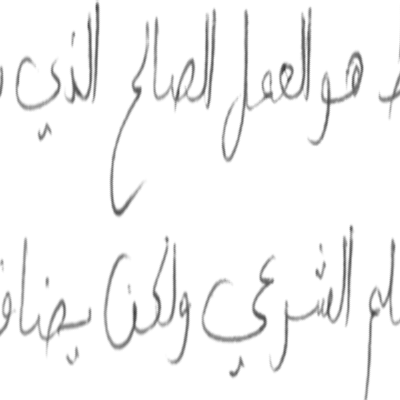 هو العمل الصالح الذي
الشرعي ولكن يضاف